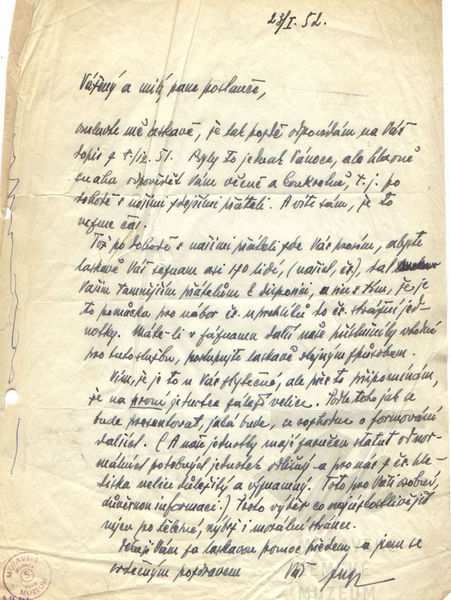 23/I. 52.
Vážený a milý pane poslanče,
omluvte mě laskavě, že tak pozdě odpovídám na Váš
dopis z 7./12. 51. Byly to jednak Vánoce, ale hlavně
snaha odpovědět Vám věcně a konkretně, t. j. po
dohodě s našimi zdejšími přáteli. A víte sám, že to
vezme čas.
Tož po dohodě s našimi přáteli zde Vás prosím, abyste
laskavě Váš seznam asi 140 lidí, (našich, čs.), dal
Vašim tamnějším přátelům k disposici, a s tím, že je
to pomůcka pro nábor čs. uprchlíků do čs. strážní jed-
notky. Máte-li v záznamu další naše příslušníky vhodné
pro tuto službu, postupujte laskavě stejným způsobem.
Vím, že je to u Vás ztyčené, ale přesto připomínám,
že na první jednotce záleží velice. Podle toho jak a
bude presentovat, jaká bude, se rozhodne o formování
dalších. (A naše jednotky mají zaručen statut od nor-
málních podobných jednotek odlišný a pro nás z čs. hle-
diska velice důležitý a významný. Toto pro Vaši osobní,
důvěrnou informaci.) Tento výběr co nejúzkostlivější
nejen po tělesné, nýbrž i morální stránce.
Děkuji Vám za laskavou pomoc předem a jsem se
srdečným pozdravem Váš
MORAVSKÉ
ZEMSKÉ
MUZEUM